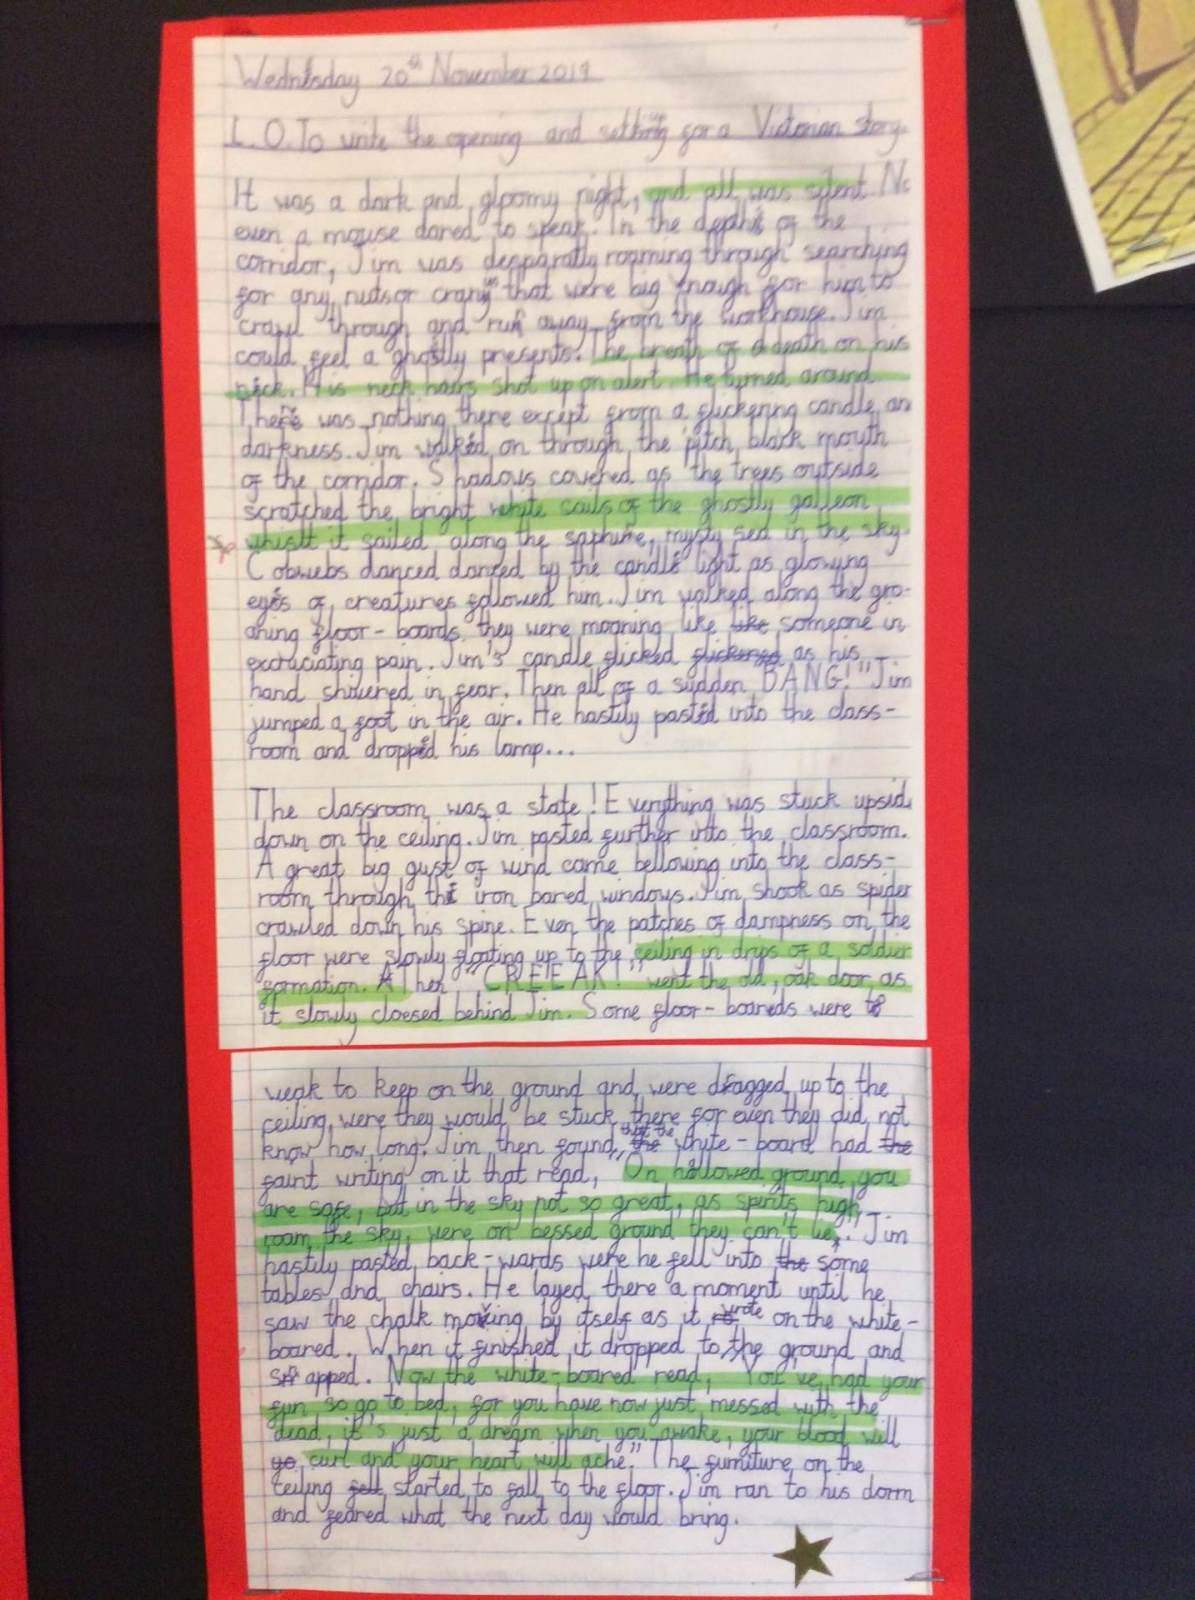 Wednesday 20th November 2019
L.O. To write the opening and setting for a Victorian story.
It was a dark and gloomy night, and all was silent. No
even a mouse dared to speak. In the depths of the
corridor, Jim was desparatly roaming through searching
for any nutsor crany that were big enough for him to
crawl through and run away from the workhouse. Jim
could feel a ghostly presents. The breath of death on his
neck. His neck hairs shot up on alert. He turned around
There was nothing there except from a flickering candle an
darkness. Jim walked on through the pitch black mouth
of the corridor. Shadows covered as the trees outside
scratched the bright white sails of the ghostly galleon
whislt it sailed along the saphire, mysty sea in the sky.
Cobwebs danced danced by the candle light as glowing
eyes of creatures followed him. Jim walked along the gro-
aning floor-boards, they were moaning like like someone in
excruciating pain. Jim's candle flicked flickered as his
hand shivered in fear. Then all of a sudden BANG!" Jim
jumped a foot in the air. He hastily pasted into the class-
room and dropped his lamp...
The classroom was a state! Everything was stuck upsid
down on the ceiling. Jim pasted further into the classroom.
A great big gust of wind came bellowing into the class-
room through the iron bared windows. Jim shook as spider
crawled down his spine. Even the patches of dampness on the
floor were slowly floating up to the ceiling in drips of a soldier
formation. Then "CREEAK!" went the old, oak door as
it slowly cloesed behind Jim. Some floor-boareds were to
weak to keep on the ground and were dragged up to the
ceiling, were they would be stuck there for even they did not
know how long. Jim then found, the that the white-board had the
faint writing on it that read, "On hallowed ground you
are safe, but in the sky not so great, as spirits high
roam the sky, were on bessed ground they can't lie." Jim
hastily pasted back-wards were he fell into the some
tables and chairs. He layed there a moment until he
saw the chalk moving by itself as it wrote on the white-
boared. When it finished it dropped to the ground and
snapped. Now the white-boared read, "You've had your
fun so go to bed, for you have now just messed with the
dead, it's just a dream when you awake, your blood will
go curl and your heart will ache." The furniture on the
ceiling fell started to fall to the floor. Jim ran to his dorm
and feared what the next day would bring.